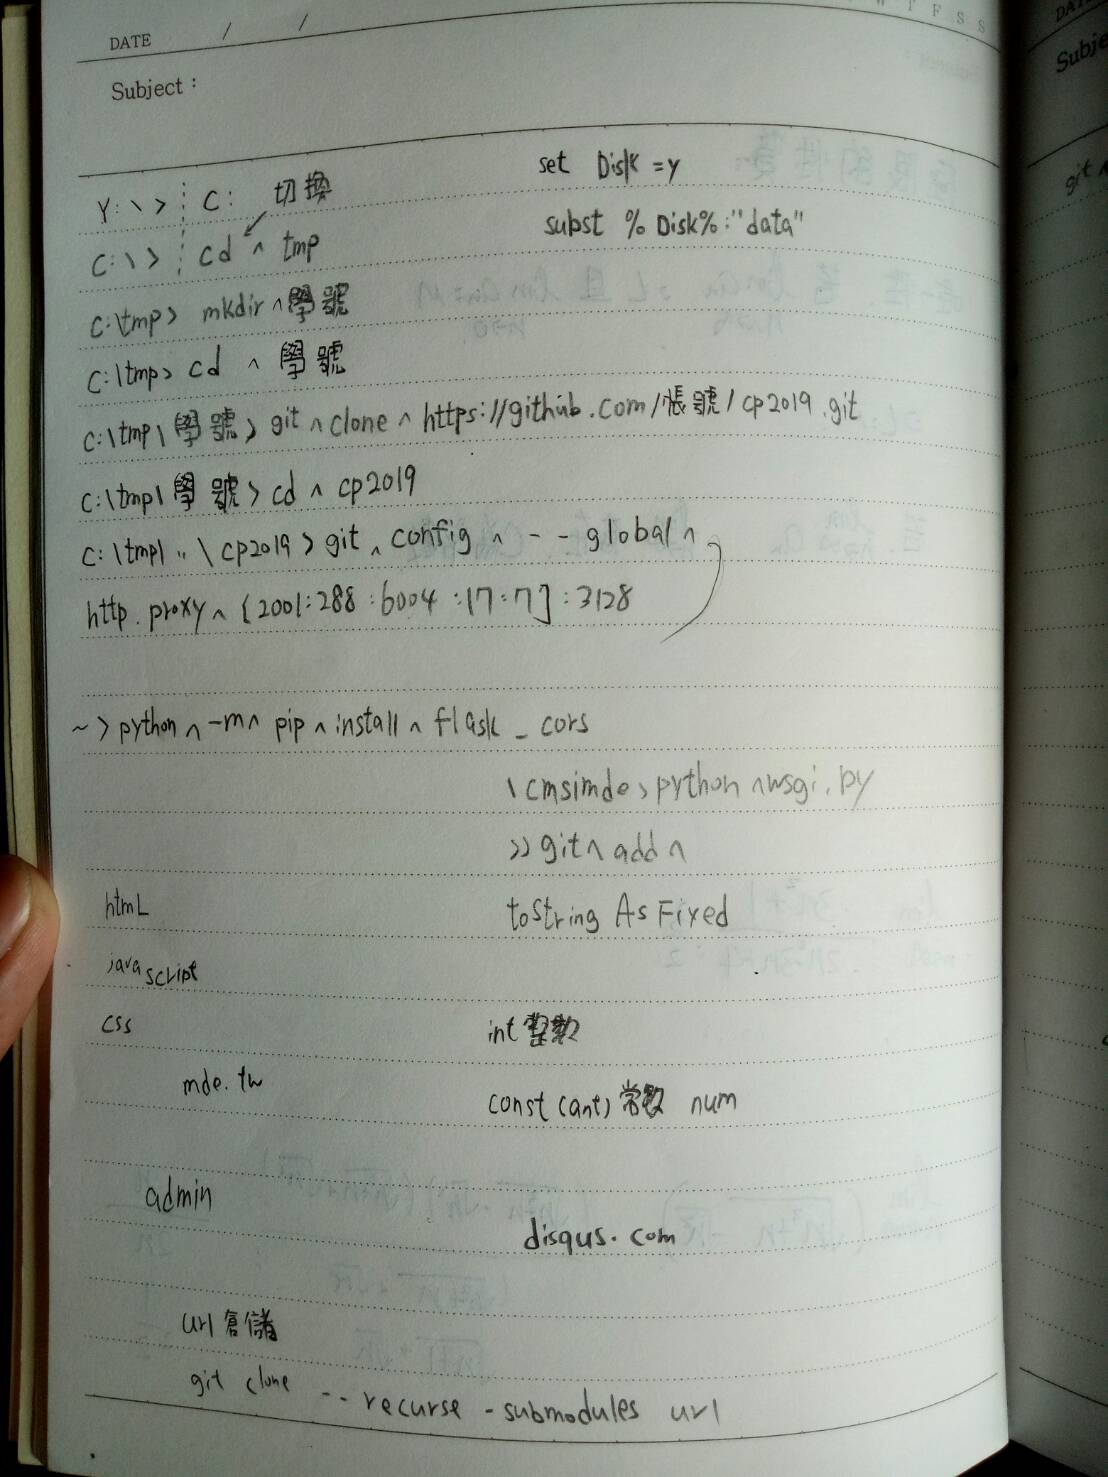 W T F S S
DATE / /
Subject :
set Disk = y
Y:\> C: 切換
subst % Disk% : "data"
C:\> cd ^ tmp
C:\tmp> mkdir ^ 學號
C:\tmp> cd ^ 學號
C:\tmp\學號> git ^ clone ^ https://github.com/帳號/cp2019.git
C:\tmp\學號> cd ^ cp2019
C:\tmp\ " \cp2019 > git ^ config ^ -- global ^
http.proxy ^ [2001:288:6004:17:7]:3128
~> python ^ -m ^ pip ^ install ^ flask _ cors
\cmsimde> python ^ wsgi.py
>> git ^ add ^
html
toString As Fixed
javascript
css
int 整數
mde.tw
const (ant) 常數 num
admin
disqus.com
url 倉儲
git clone -- recurse - submodules url
DATE
Subje
git ^